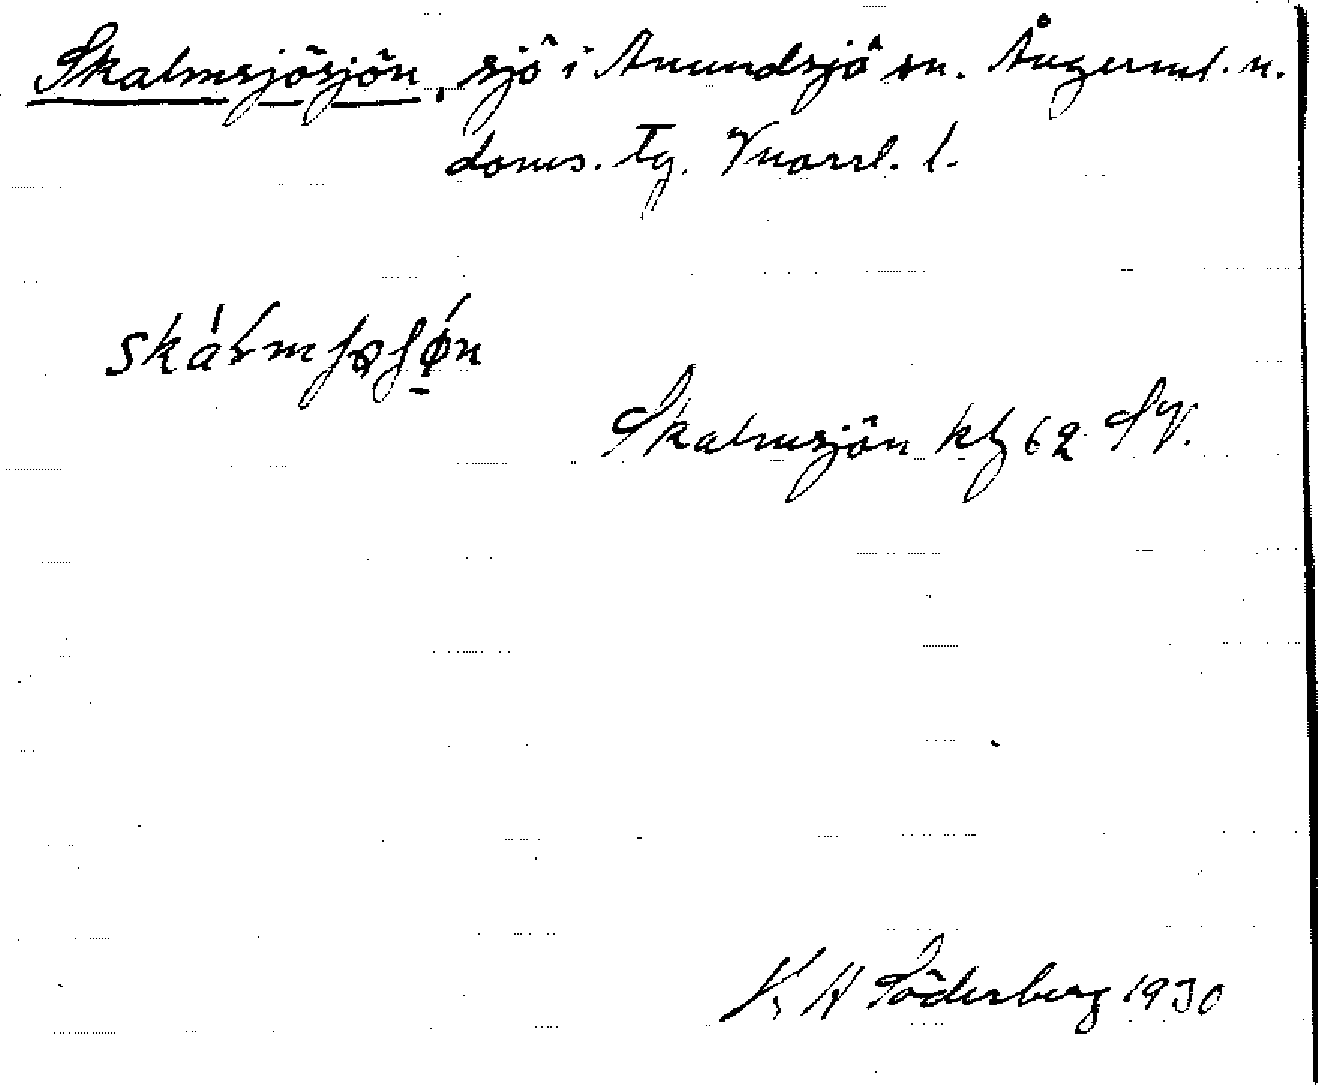 Skalmsjösjön, sjö i Anundsjö sn. Ångerml. n.
doms. Tg. Vnorrl. l.
Skalmsjön kbl 62 SV.
K H Söderberg 1930